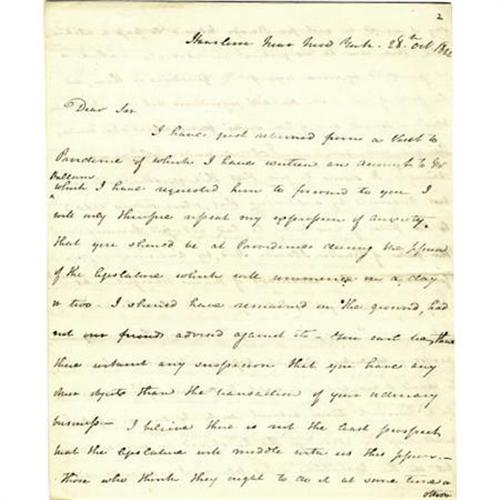 2
Harlem near New York. 28th Oct
Dear Sir
I have just returned from a visit to
Providence of which I have written an account to Mr
Dallam
which I have requested him to forward to you I
will only therefore repeat my expression of anxiety
that you should be at Providence during the session
of the legislature which will commence in a day
or two. I should have remained on the ground, had
not our friends advised against it. You can be
there without any suspicion that you have any
other objects than the transaction of your ordinary
business I believe there is not the least prospect
that the legislature will meddle with us this session.
those who think they ought to do it at some time or
other